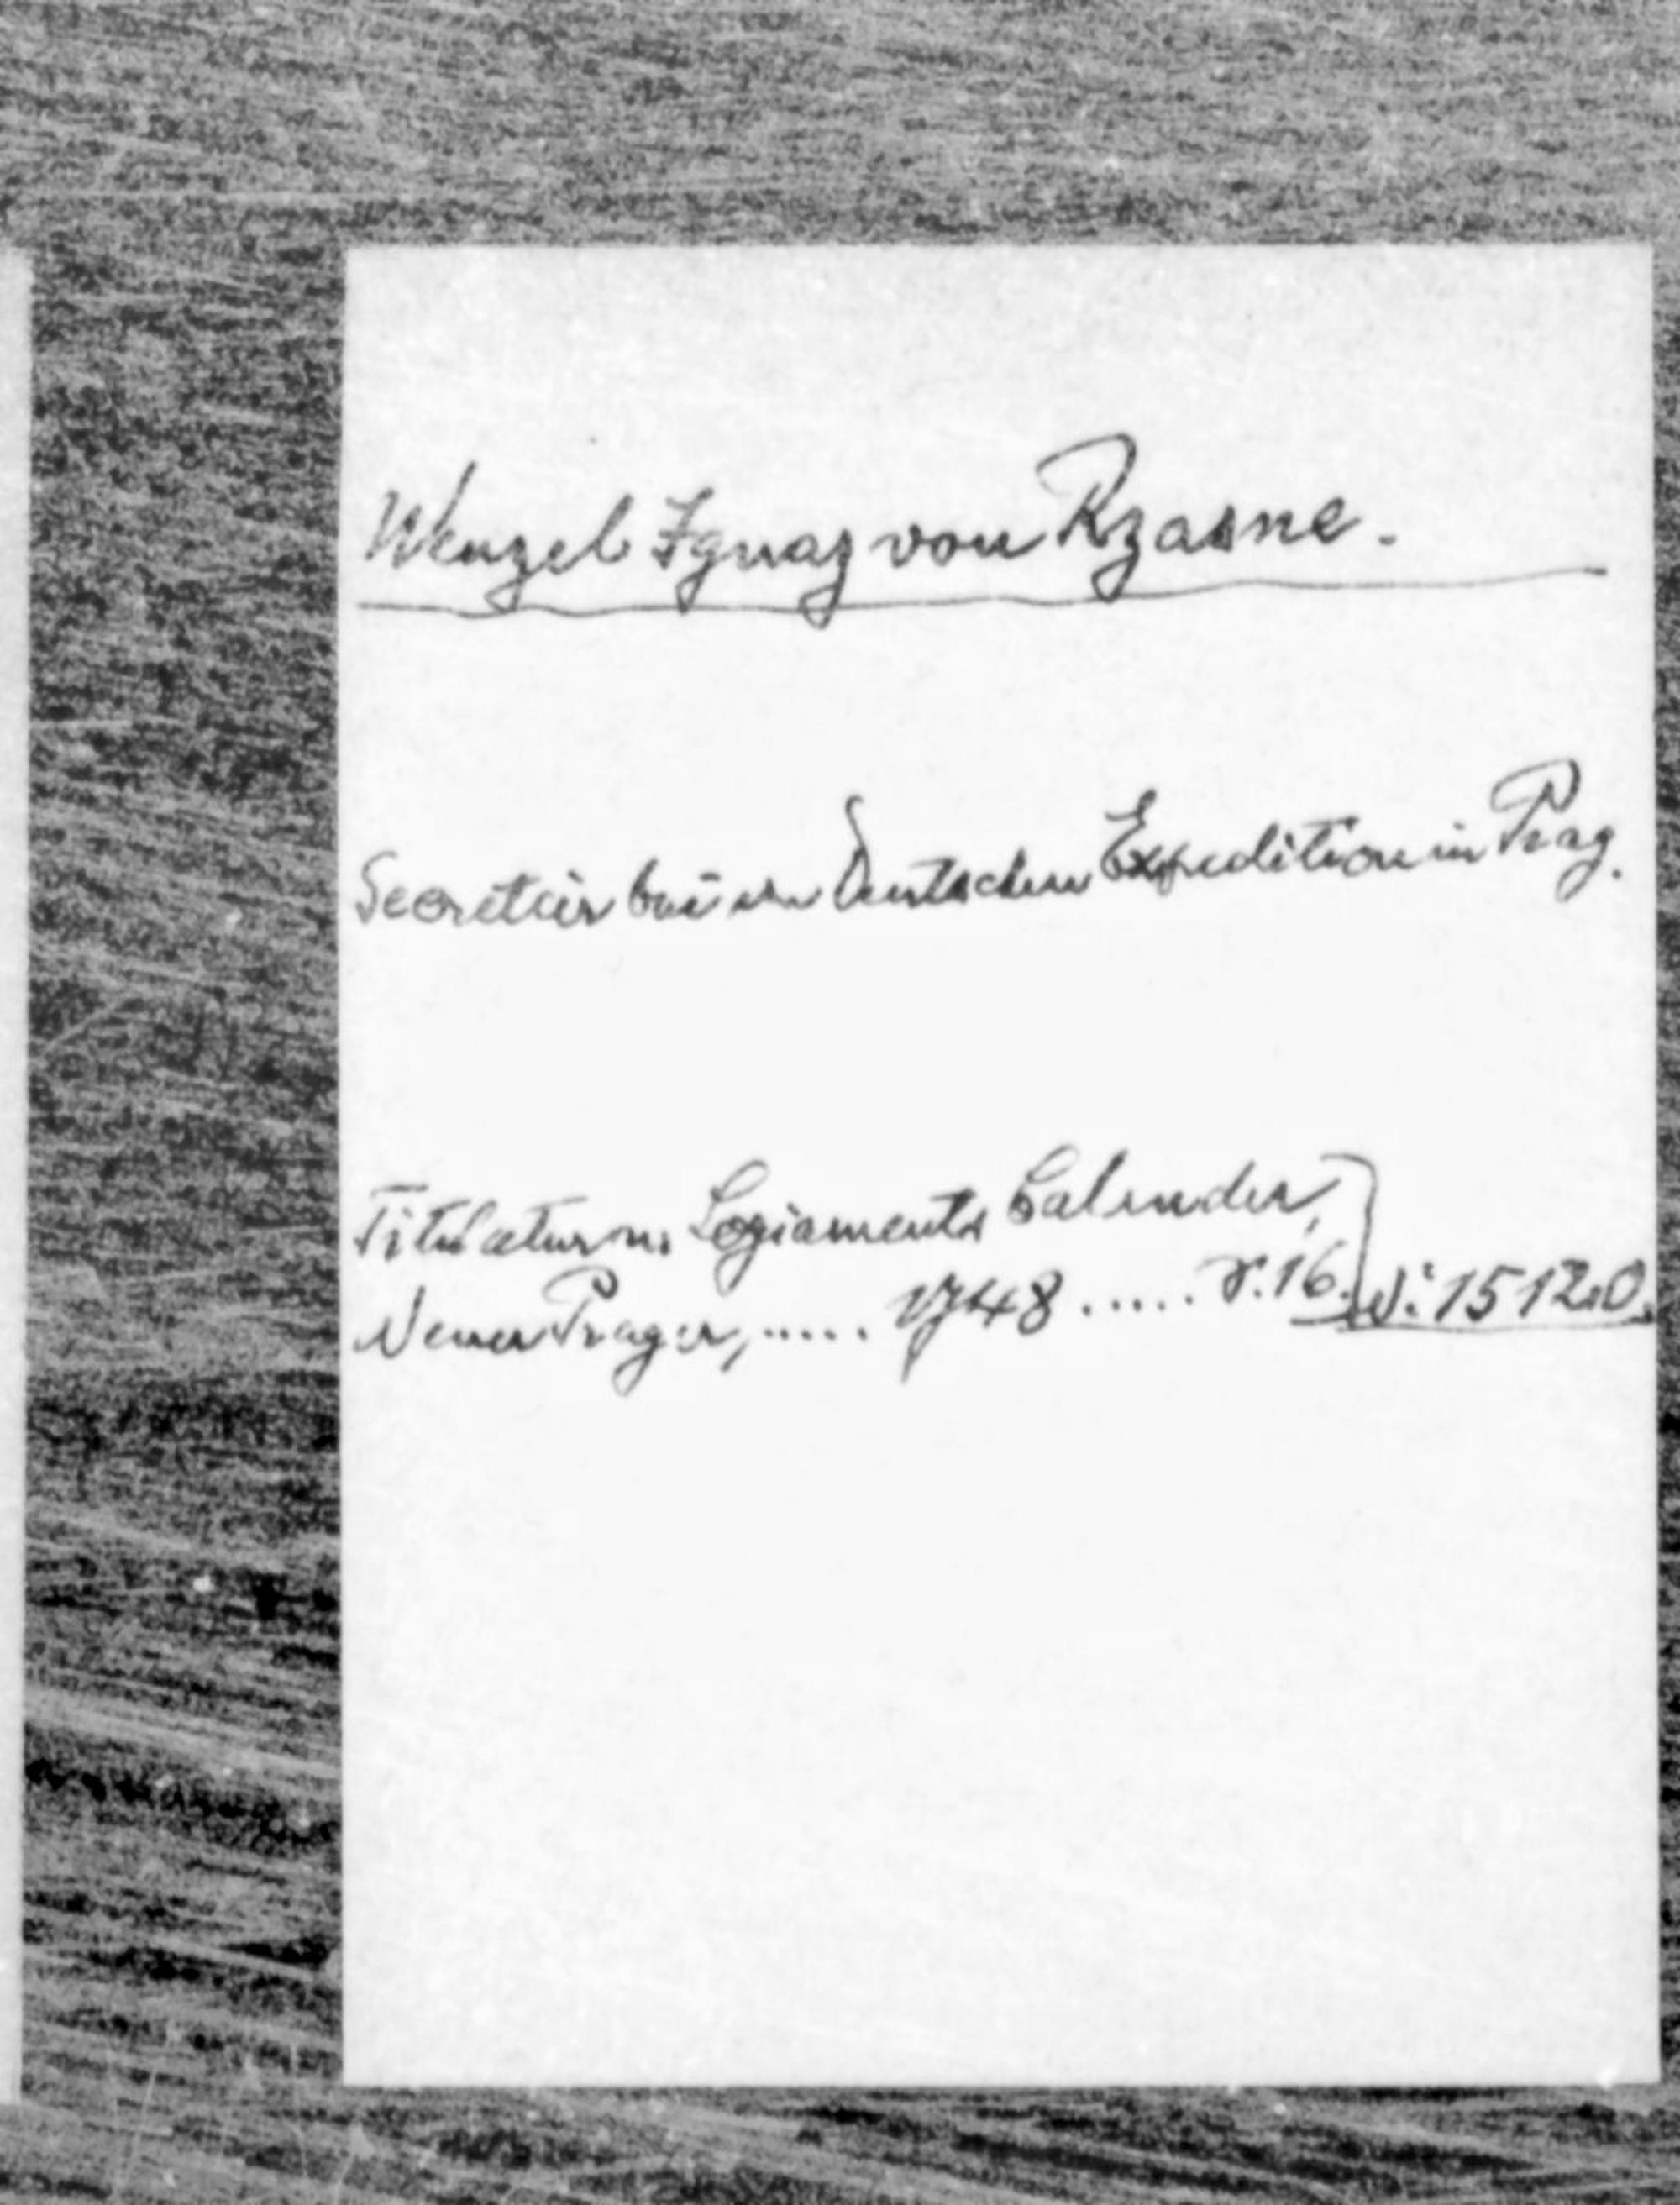 Wenzel Ignaz von Rzasne.
Secretair bei der Deutschen Expedition in Prag.
Titulatur u. Logiaments Calender,
Neuer Prager, ..... 1748 ..... S. 16. N: 15120.